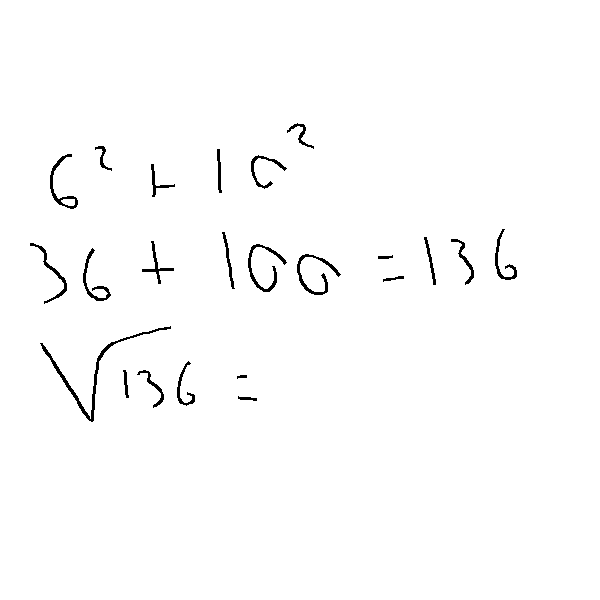 6² + 10²
36 + 100 = 136
√136 =